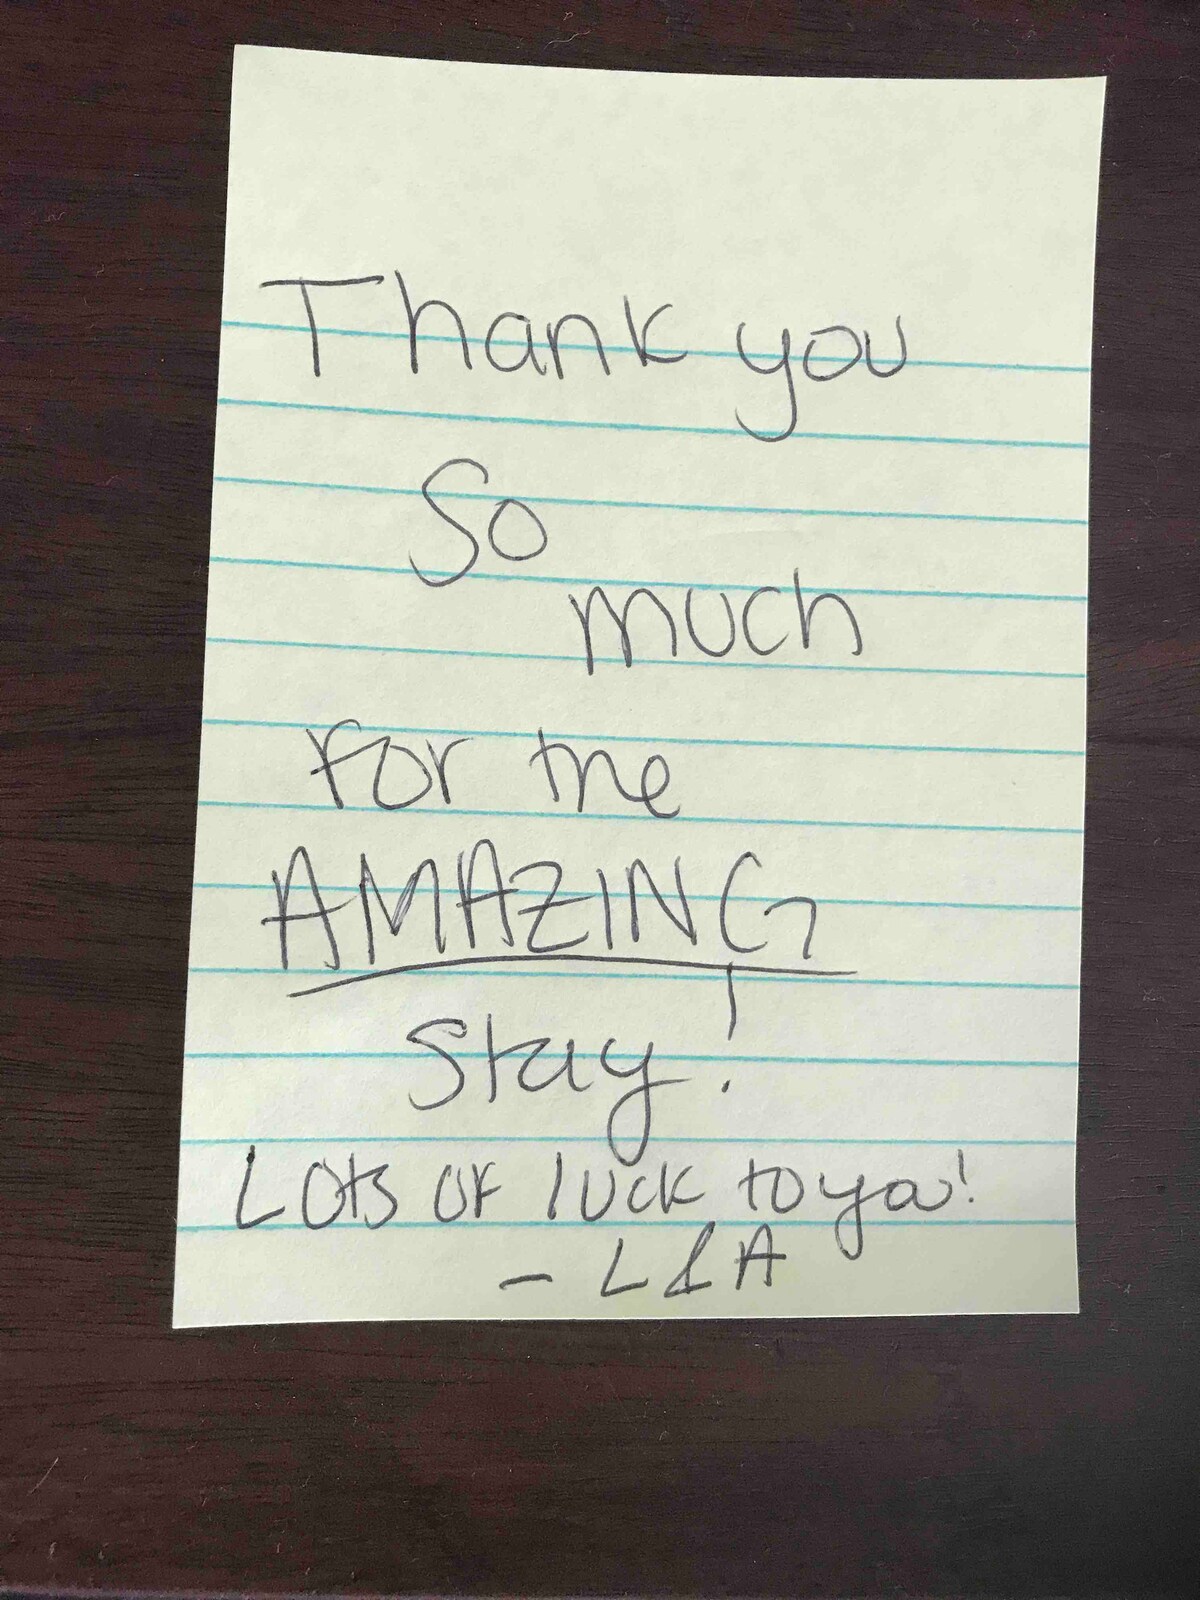 Thank you
So
much
For the
AMAZING
Stay!
Lots of luck to ya!
- L & A